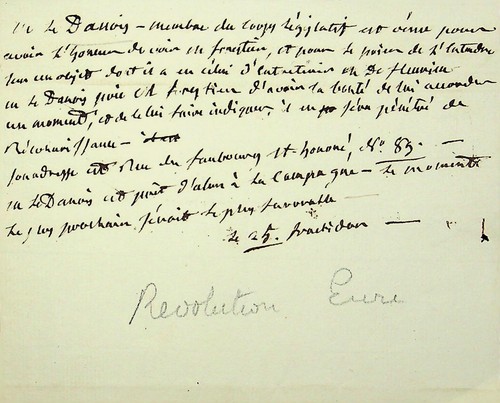 Mr le Danois – membre du corps législatif est venu pour
avoir l'honneur de voir M frestier, et pour le prier de l'entendre
sur un objet dont il a eu celui d'entretenir M De fleurieu
M le Danois prie M frestier d'avoir la bonté de lui accorder
un moment, et de le lui faire indiquer, il en sera pénétré de
Réconnoissance –
son adresse est Rue du faubourg St honoré, No. 89. —
M le Danois est prêt d'aler à la Campagne – le moment
le plus prochain seroit le plus favorable
le 25. fructidor —
Revolution Eure